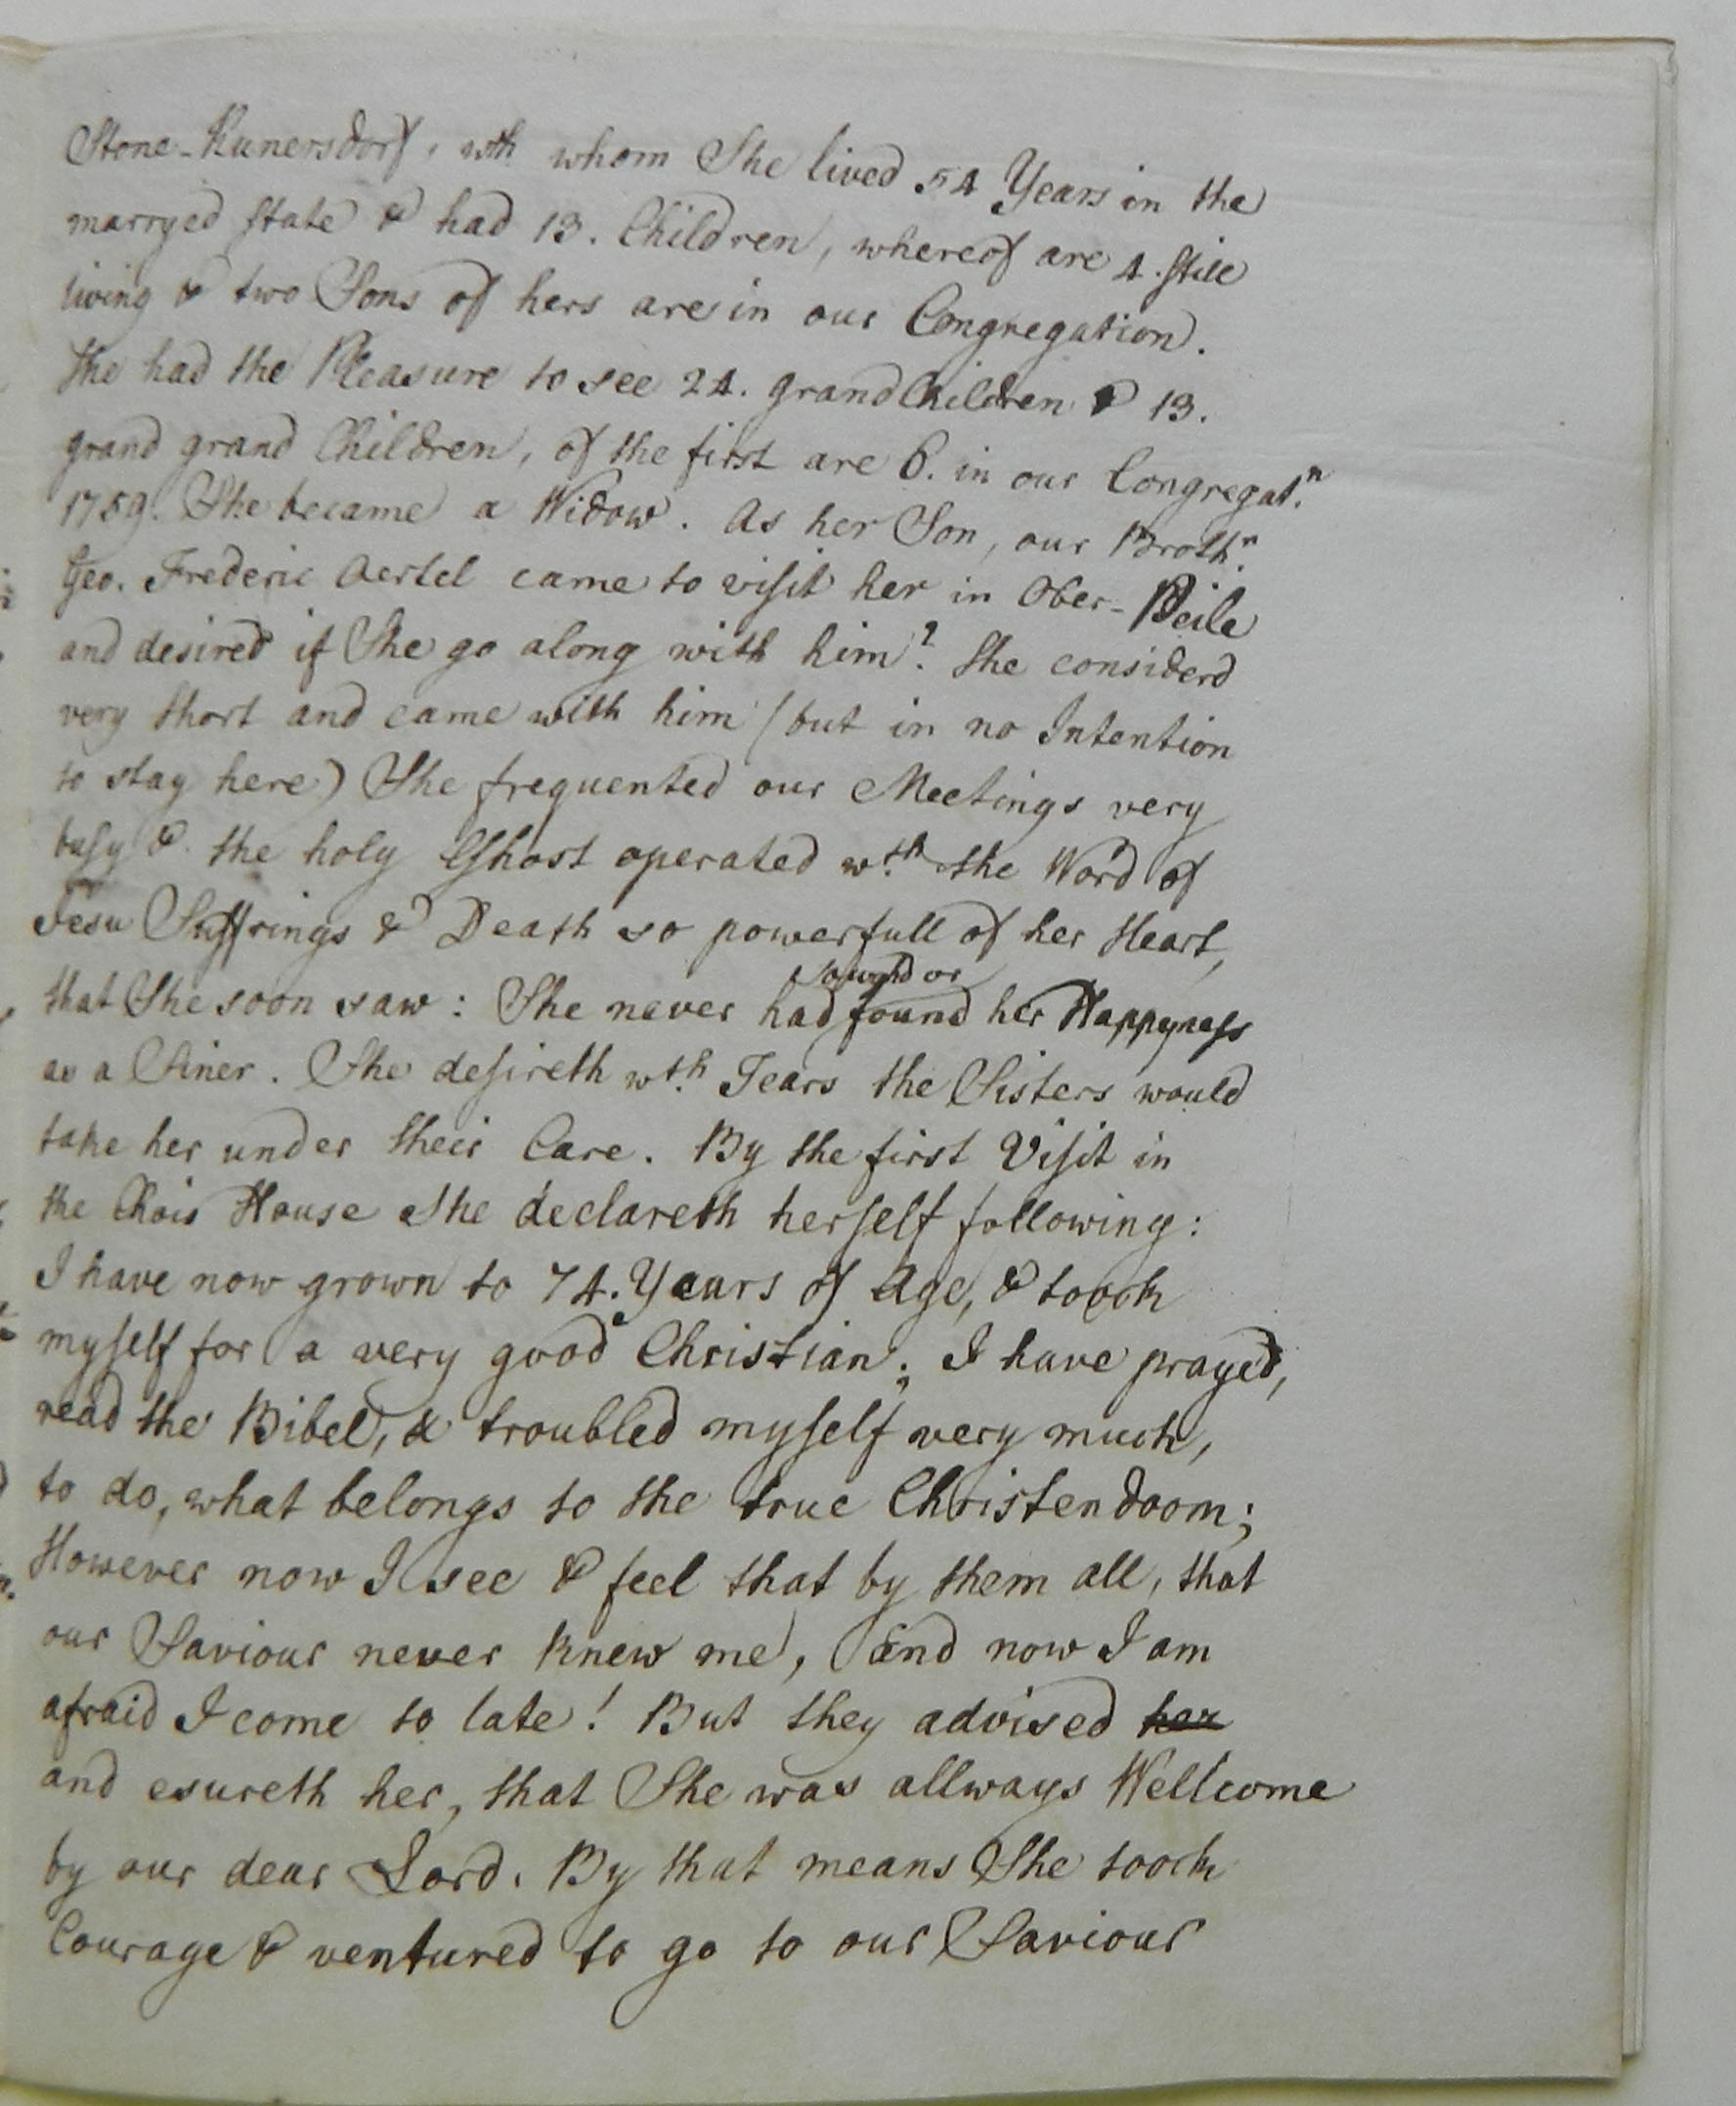 Stone-Kunersdorf, wth whom She lived 54 Years in the
marryed state & had 13. Children, whereof are 4. still
living & two Sons of hers are in our Congregation.
She had the Pleasure to see 24. grandChildren & 13.
grand grand Children, of the first are 6. in our Congregat.n
1759. She became a Widow. As her Son, our Broth.r
Geo. Frederic Oertel came to visit her in Ober-Peile
and desired if She go along with him? She considerd
very short and came with him (but in no Intention
to stay here) She frequented our Meetings very
busy & the holy Ghost operated w.th the Word of
Jesu Suffrings & Death so powerfull of her Heart,
that She soon saw: She never had sought or found her Happyness
as a Siner. She desireth w.th Tears the Sisters would
take her under their Care. By the first Visit in
the Chois House She declareth herself following:
I have now grown to 74. Years of Age, & toock
myself for a very good Christian; I have prayed,
read the Bibel, & troubled myself very much,
to do, what belongs to the true Christendoom;
However now I see & feel that by them all, that
our Saviour never knew me, and now I am
afraid I come to late! But they advised her
and esureth her, that She was allways Wellcome
by our dear Lord. By that means She toock
Courage & ventured to go to our Saviour